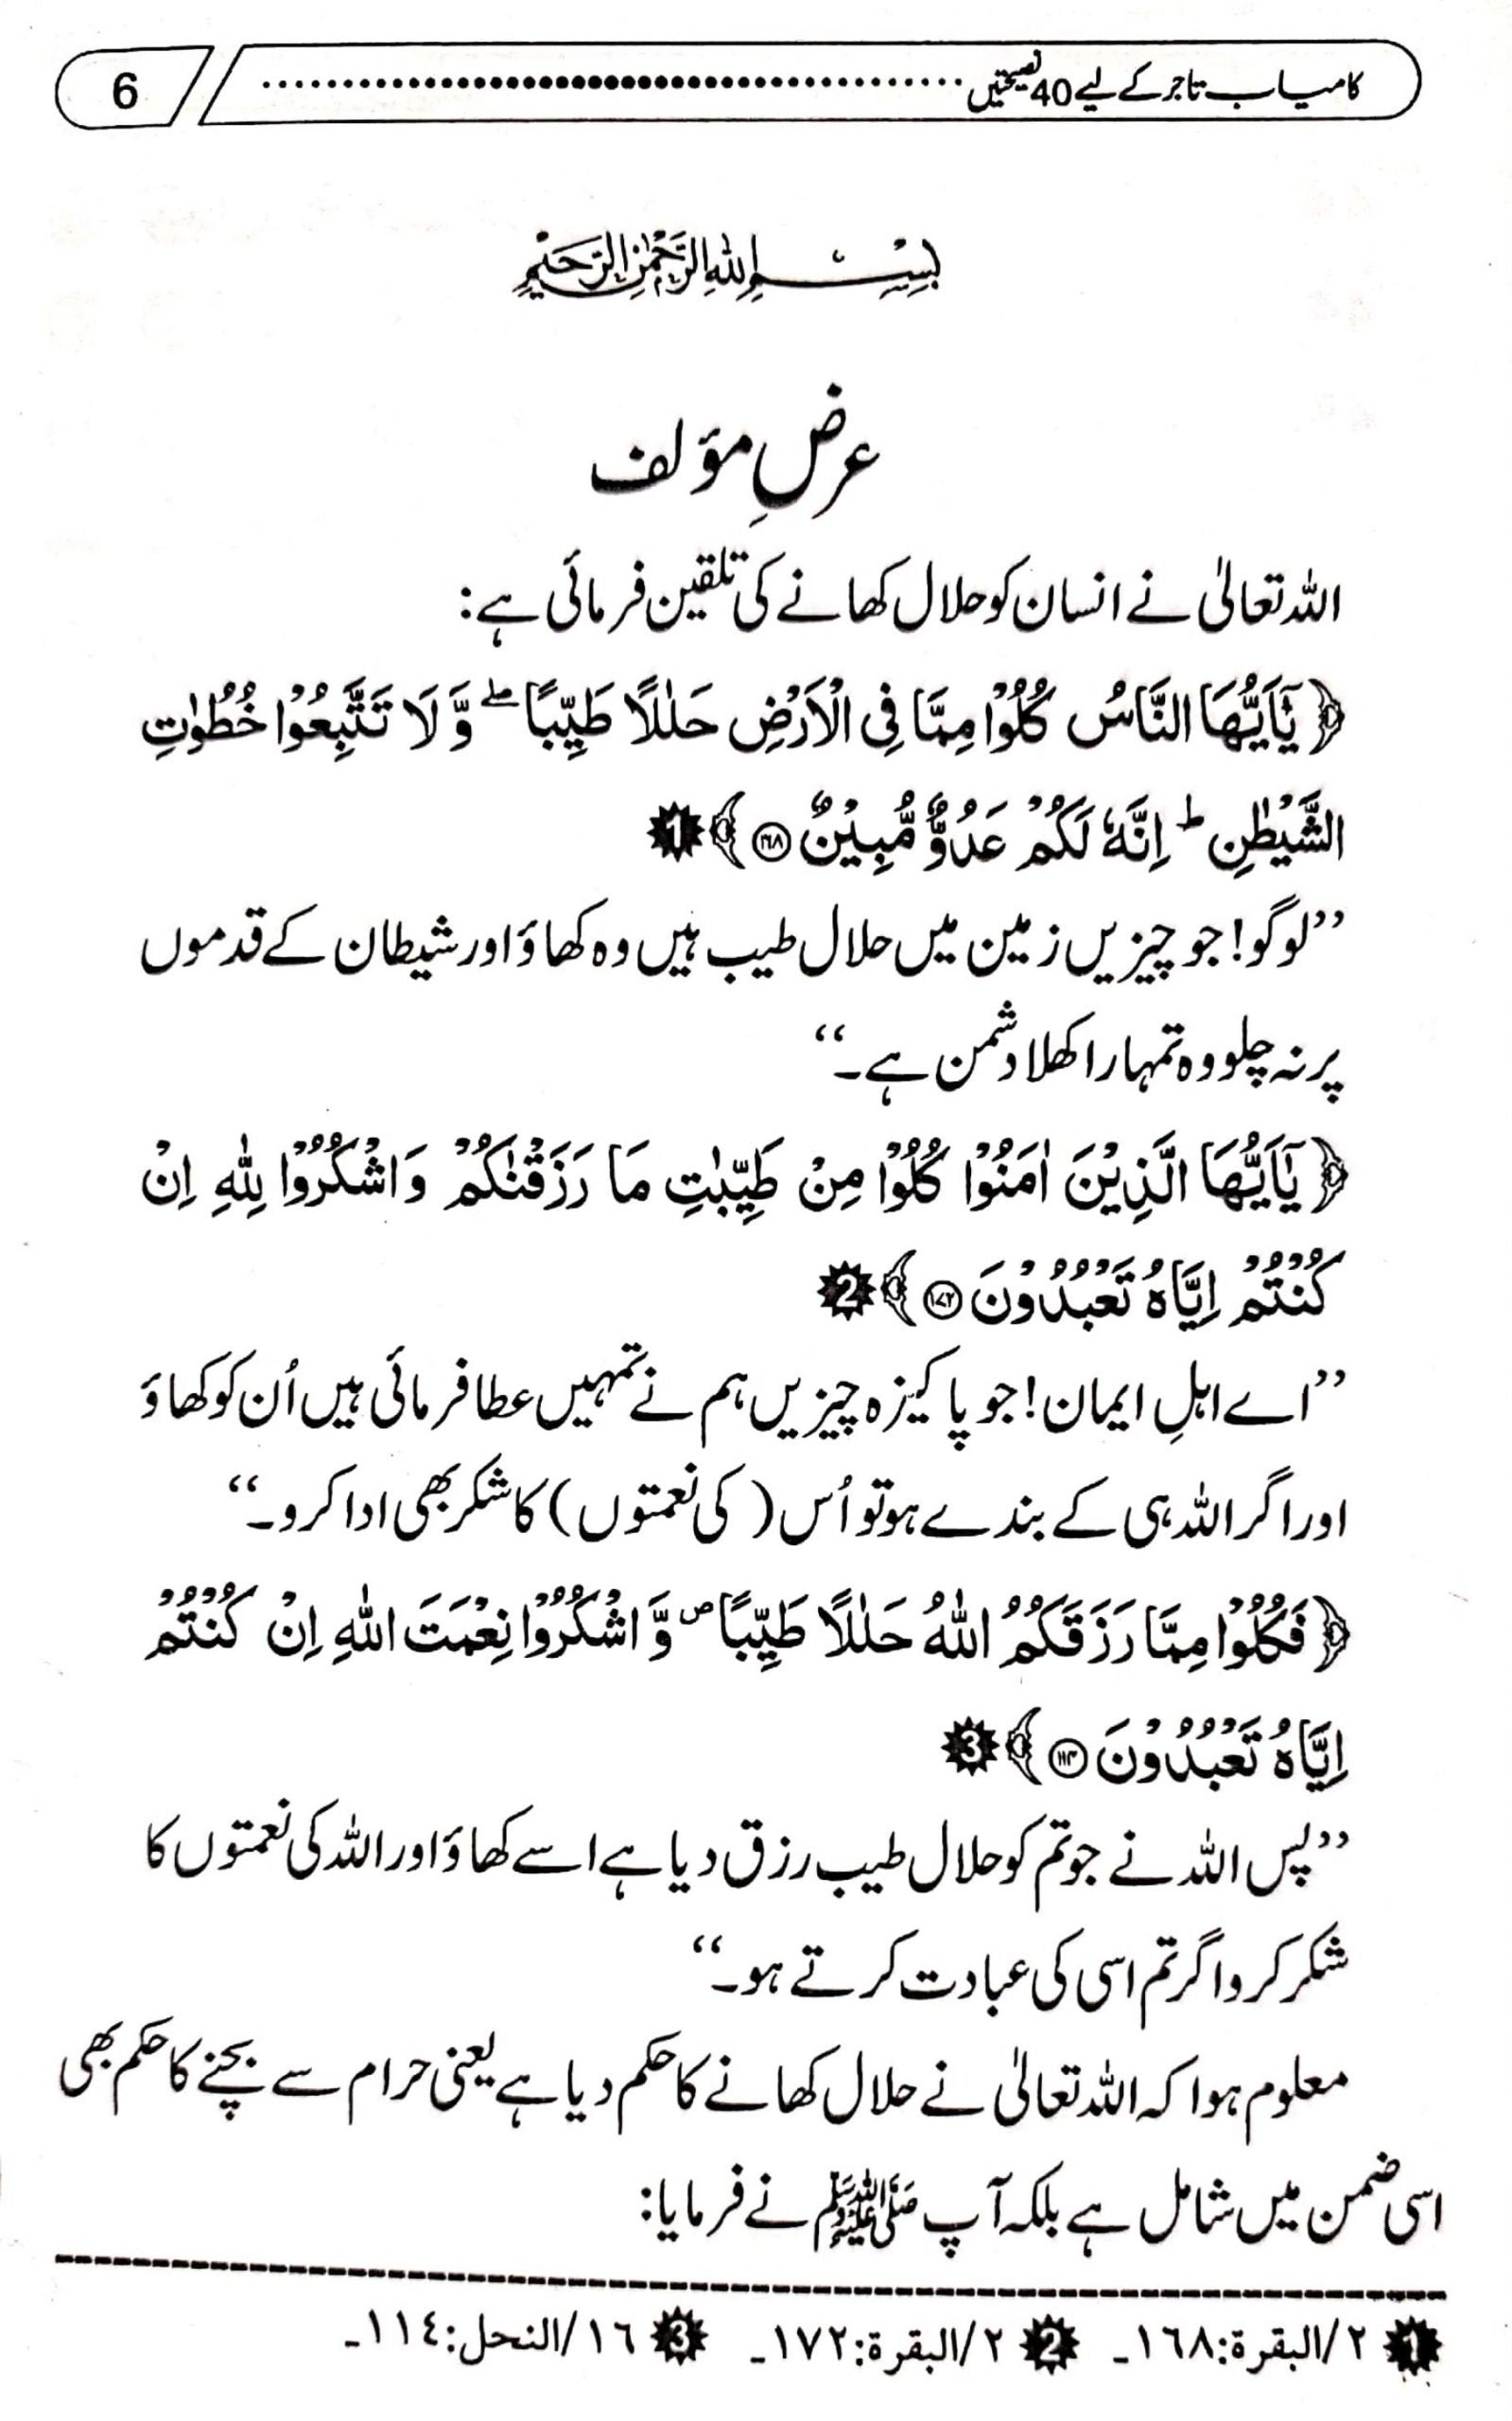 کامیاب تاجر کے لیے 40 نصیحتیں ........................................ 6
بِسْمِ اللهِ الرَّحْمٰنِ الرَّحِيْمِ
عرضِ مؤلف
اللہ تعالیٰ نے انسان کو حلال کھانے کی تلقین فرمائی ہے:
﴿ يٰۤاَيُّهَا النَّاسُ كُلُوْا مِمَّا فِي الْاَرْضِ حَلٰلًا طَيِّبًا ۖ وَّ لَا تَتَّبِعُوْا خُطُوٰتِ
الشَّيْطٰنِ ؕ اِنَّهٗ لَكُمْ عَدُوٌّ مُّبِيْنٌ ۝۱۶۸ ﴾ 1
’’لوگو! جو چیزیں زمین میں حلال طیب ہیں وہ کھاؤ اور شیطان کے قدموں
پر نہ چلو وہ تمہارا کھلا دشمن ہے۔‘‘
﴿ يٰۤاَيُّهَا الَّذِيْنَ اٰمَنُوْا كُلُوْا مِنْ طَيِّبٰتِ مَا رَزَقْنٰكُمْ وَ اشْكُرُوْا لِلّٰهِ اِنْ
كُنْتُمْ اِيَّاهُ تَعْبُدُوْنَ ۝۱۷۲ ﴾ 2
’’اے اہلِ ایمان! جو پاکیزہ چیزیں ہم نے تمہیں عطا فرمائی ہیں اُن کو کھاؤ
اور اگر اللہ ہی کے بندے ہو تو اُس (کی نعمتوں) کا شکر بھی ادا کرو۔‘‘
﴿ فَكُلُوْا مِمَّا رَزَقَكُمُ اللّٰهُ حَلٰلًا طَيِّبًا ۪ وَّ اشْكُرُوْا نِعْمَتَ اللّٰهِ اِنْ كُنْتُمْ
اِيَّاهُ تَعْبُدُوْنَ ۝۱۱۴ ﴾ 3
’’پس اللہ نے جو تم کو حلال طیب رزق دیا ہے اسے کھاؤ اور اللہ کی نعمتوں کا
شکر کرو اگر تم اسی کی عبادت کرتے ہو۔‘‘
معلوم ہوا کہ اللہ تعالیٰ نے حلال کھانے کا حکم دیا ہے یعنی حرام سے بچنے کا حکم بھی
اسی ضمن میں شامل ہے بلکہ آپ ﷺ نے فرمایا:
1 ٢/البقرة:١٦٨۔ 2 ٢/البقرة:١٧٢۔ 3 ١٦/النحل:١١٤۔